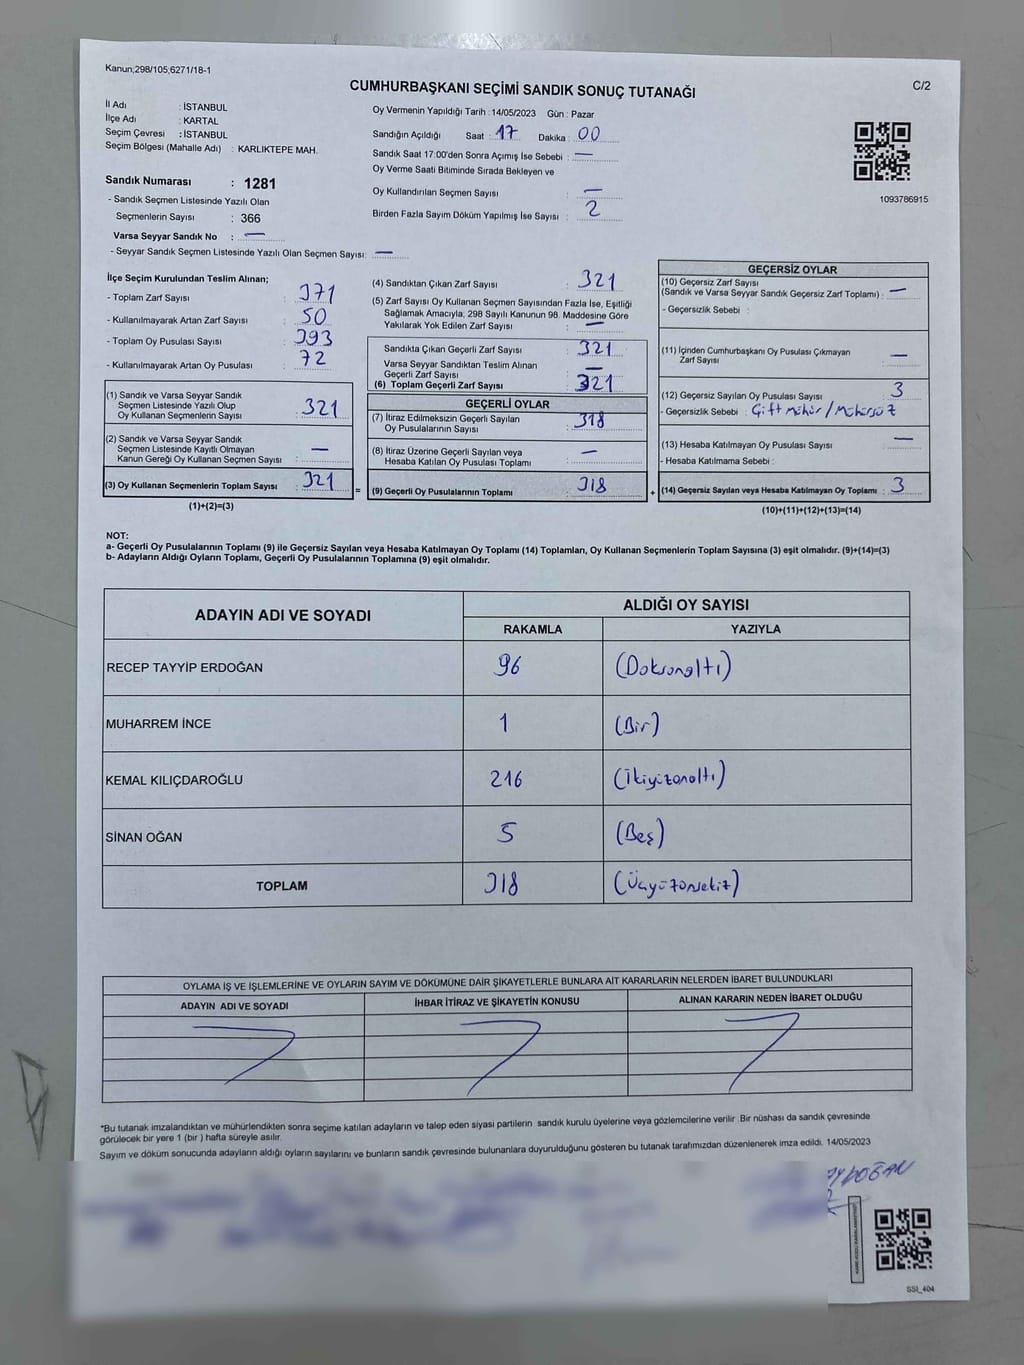 Kanun;298/105;6271/18-1
C/2
CUMHURBAŞKANI SEÇİMİ SANDIK SONUÇ TUTANAĞI
İl Adı : İSTANBUL
İlçe Adı : KARTAL
Seçim Çevresi : İSTANBUL
Seçim Bölgesi (Mahalle Adı) : KARLIKTEPE MAH.
Sandık Numarası : 1281
- Sandık Seçmen Listesinde Yazılı Olan
Seçmenlerin Sayısı : 366
Varsa Seyyar Sandık No : —
- Seyyar Sandık Seçmen Listesinde Yazılı Olan Seçmen Sayısı: —
Oy Vermenin Yapıldığı Tarih :14/05/2023 Gün : Pazar
Sandığın Açıldığı Saat : 17 Dakika : 00
Sandık Saat 17:00'den Sonra Açımış İse Sebebi : —
Oy Verme Saati Bitiminde Sırada Bekleyen ve
Oy Kullandırılan Seçmen Sayısı : —
Birden Fazla Sayım Döküm Yapılmış İse Sayısı : 2
1093786915
İlçe Seçim Kurulundan Teslim Alınan;
- Toplam Zarf Sayısı : 371
- Kullanılmayarak Artan Zarf Sayısı : 50
- Toplam Oy Pusulası Sayısı : 393
- Kullanılmayarak Artan Oy Pusulası : 72
(1) Sandık ve Varsa Seyyar Sandık
Seçmen Listesinde Yazılı Olup
Oy Kullanan Seçmenlerin Sayısı : 321
(2) Sandık ve Varsa Seyyar Sandık
Seçmen Listesinde Kayıtlı Olmayan
Kanun Gereği Oy Kullanan Seçmen Sayısı : —
(3) Oy Kullanan Seçmenlerin Toplam Sayısı : 321
(1)+(2)=(3)
(4) Sandıktan Çıkan Zarf Sayısı : 321
(5) Zarf Sayısı Oy Kullanan Seçmen Sayısından Fazla İse, Eşitliği
Sağlamak Amacıyla, 298 Sayılı Kanunun 98. Maddesine Göre
Yakılarak Yok Edilen Zarf Sayısı : —
Sandıkta Çıkan Geçerli Zarf Sayısı : 321
Varsa Seyyar Sandıktan Teslim Alınan
Geçerli Zarf Sayısı : —
(6) Toplam Geçerli Zarf Sayısı : 321
GEÇERLİ OYLAR
(7) İtiraz Edilmeksizin Geçerli Sayılan
Oy Pusulalarının Sayısı : 318
(8) İtiraz Üzerine Geçerli Sayılan veya
Hesaba Katılan Oy Pusulası Toplamı : —
= (9) Geçerli Oy Pusulalarının Toplamı : 318
GEÇERSİZ OYLAR
(10) Geçersiz Zarf Sayısı
(Sandık ve Varsa Seyyar Sandık Geçersiz Zarf Toplamı) : —
- Geçersizlik Sebebi :
(11) İçinden Cumhurbaşkanı Oy Pusulası Çıkmayan
Zarf Sayısı : —
(12) Geçersiz Sayılan Oy Pusulası Sayısı : 3
- Geçersizlik Sebebi : Çift mühür/Mühürsüz
(13) Hesaba Katılmayan Oy Pusulası Sayısı : —
- Hesaba Katılmama Sebebi :
+ (14) Geçersiz Sayılan veya Hesaba Katılmayan Oy Toplamı : 3
(10)+(11)+(12)+(13)=(14)
NOT:
a- Geçerli Oy Pusulalarının Toplamı (9) ile Geçersiz Sayılan veya Hesaba Katılmayan Oy Toplamı (14) Toplamları, Oy Kullanan Seçmenlerin Toplam Sayısına (3) eşit olmalıdır. (9)+(14)=(3)
b- Adayların Aldığı Oyların Toplamı, Geçerli Oy Pusulalarının Toplamına (9) eşit olmalıdır.
ADAYIN ADI VE SOYADI ALDIĞI OY SAYISI
RAKAMLA YAZIYLA
RECEP TAYYİP ERDOĞAN 96 (Doksanaltı)
MUHARREM İNCE 1 (Bir)
KEMAL KILIÇDAROĞLU 216 (İkiyüzonaltı)
SİNAN OĞAN 5 (Beş)
TOPLAM 318 (Üçyüzonsekiz)
OYLAMA İŞ VE İŞLEMLERİNE VE OYLARIN SAYIM VE DÖKÜMÜNE DAİR ŞİKAYETLERLE BUNLARA AİT KARARLARIN NELERDEN İBARET BULUNDUKLARI
ADAYIN ADI VE SOYADI İHBAR İTİRAZ VE ŞİKAYETİN KONUSU ALINAN KARARIN NEDEN İBARET OLDUĞU
*Bu tutanak imzalandıktan ve mühürlendikten sonra seçime katılan adayların ve talep eden siyasi partilerin sandık kurulu üyelerine veya gözlemcilerine verilir. Bir nüshası da sandık çevresinde
görülecek bir yere 1 (bir ) hafta süreyle asılır.
Sayım ve döküm sonucunda adayların aldığı oyların sayılarını ve bunların sandık çevresinde bulunanlara duyurulduğunu gösteren bu tutanak tarafımızdan düzenlenerek imza edildi. 14/05/2023
SSI_404